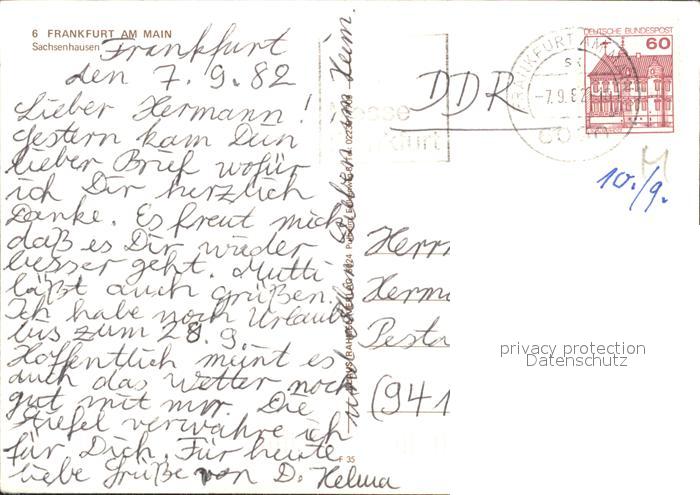 6 FRANKFURT AM MAIN
Sachsenhausen
Frankfurt
den 7.9.82
Lieber Hermann!
gestern kam Dein
lieber Brief wofür
ich Dir herzlich
Danke. Es freut mich
daß es Dir wieder
besser geht. Mutti
läßt auch grüßen.
Ich habe noch Urlaub
bis zum 28.9.
Hoffentlich meint es
auch das Wetter noch
gut mit mir. Die
Stiefel verwahre ich
für Dich. Für heute
liebe Grüße von D. Helma
Heim.
F 35
DDR
DEUTSCHE BUNDESPOST
60
FRANKFURT AM M
-7.9.82
10./9.
Herrn
Herma
Pesta
(941
privacy protection
Datenschutz